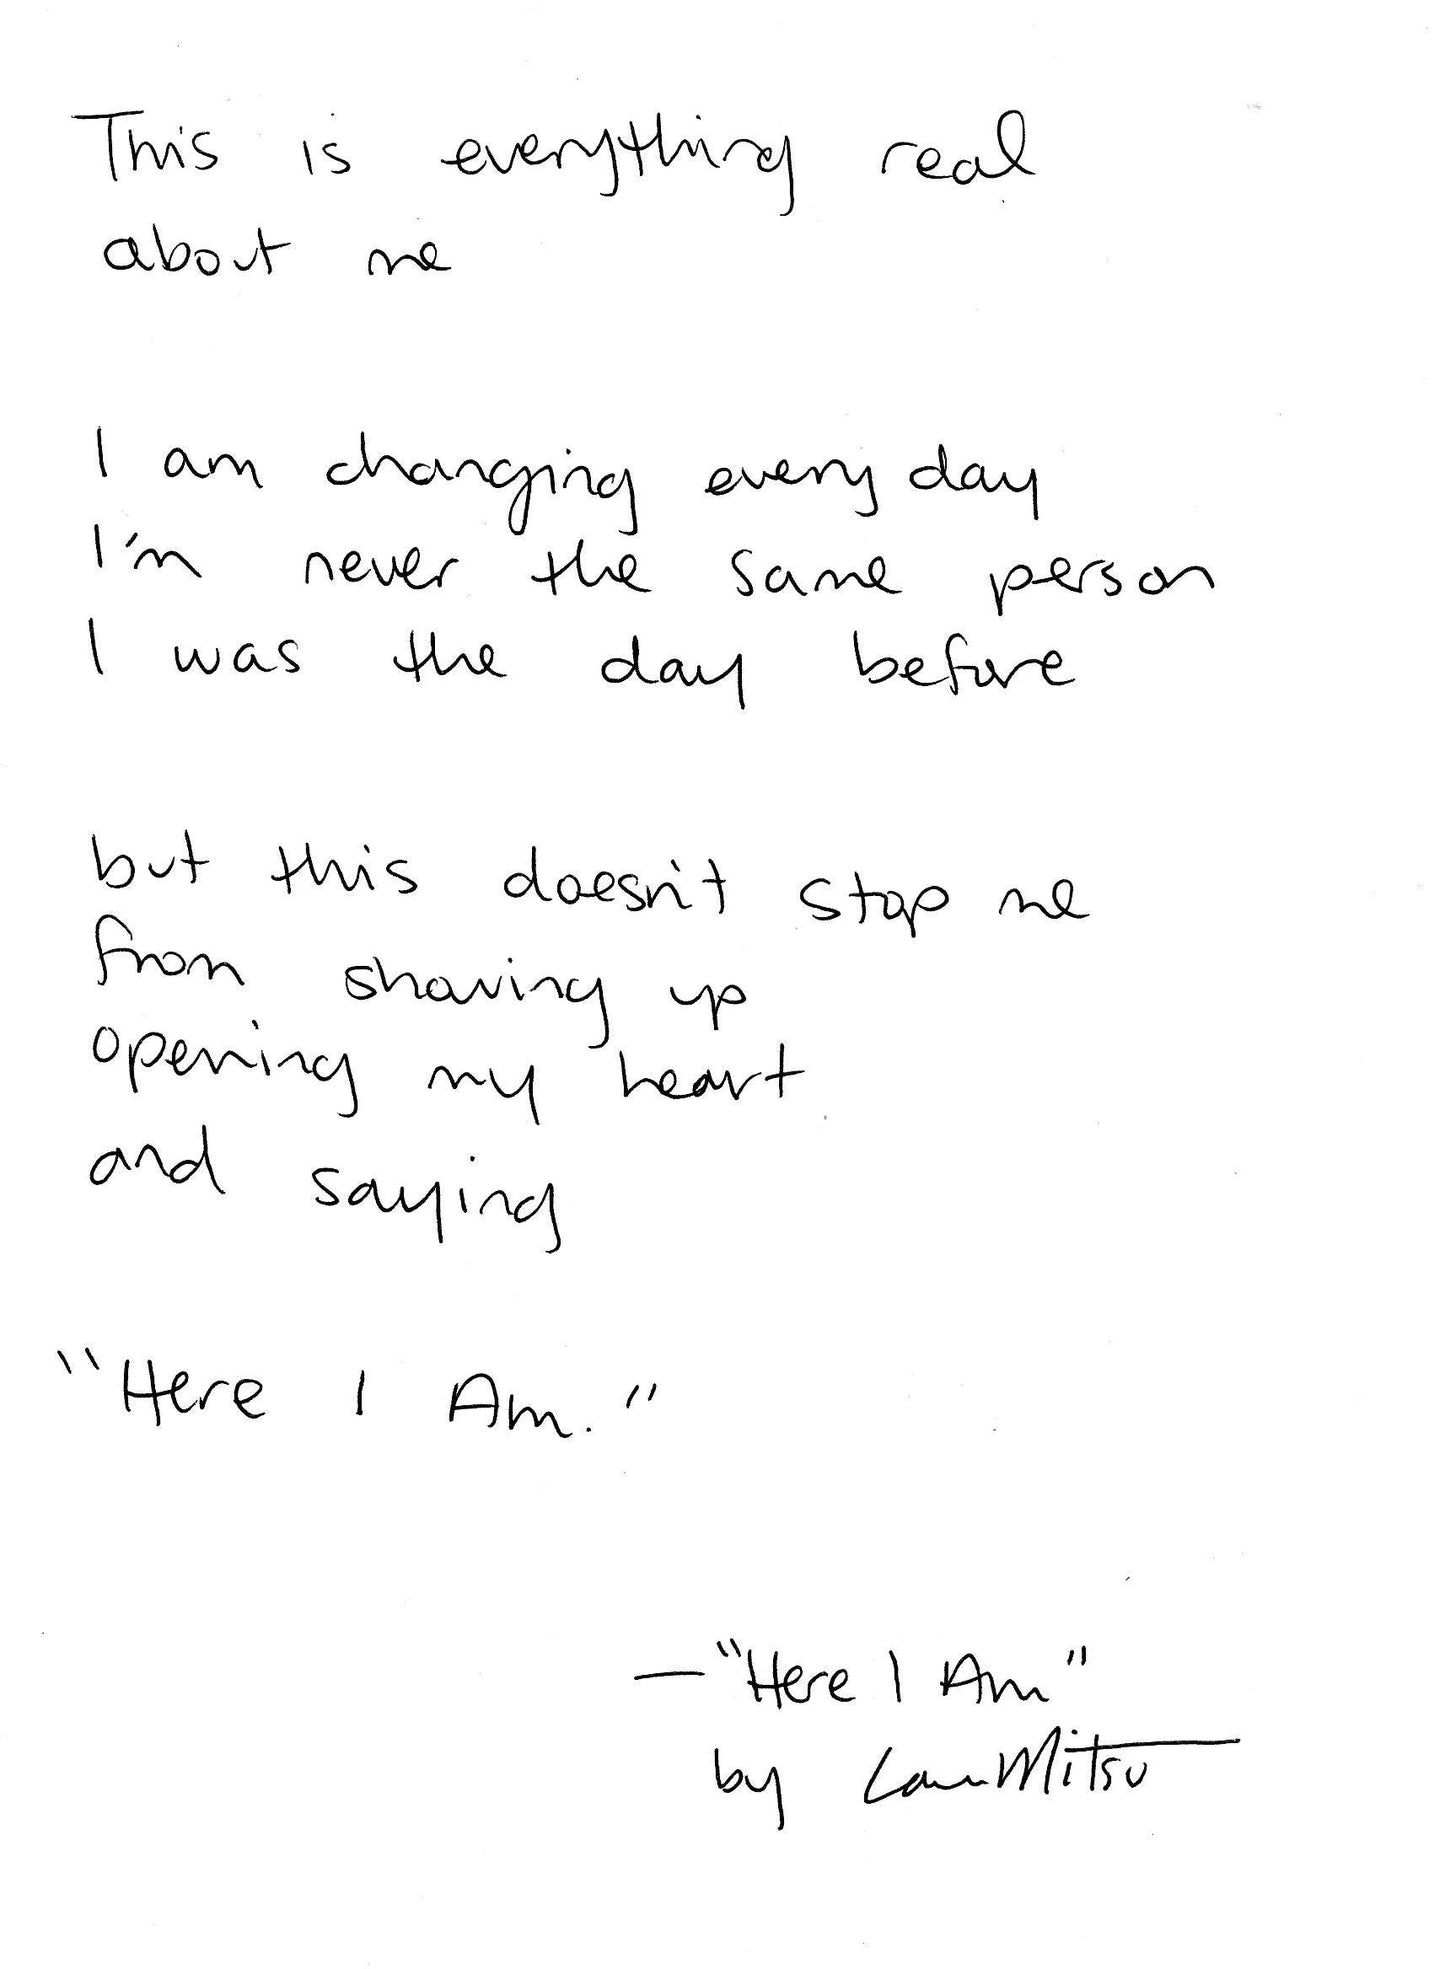 This is everything real
about me
I am changing every day
I'm never the same person
I was the day before
but this doesn't stop me
from showing up
opening my heart
and saying
"Here I Am."
— "Here I Am"
by Mitsu